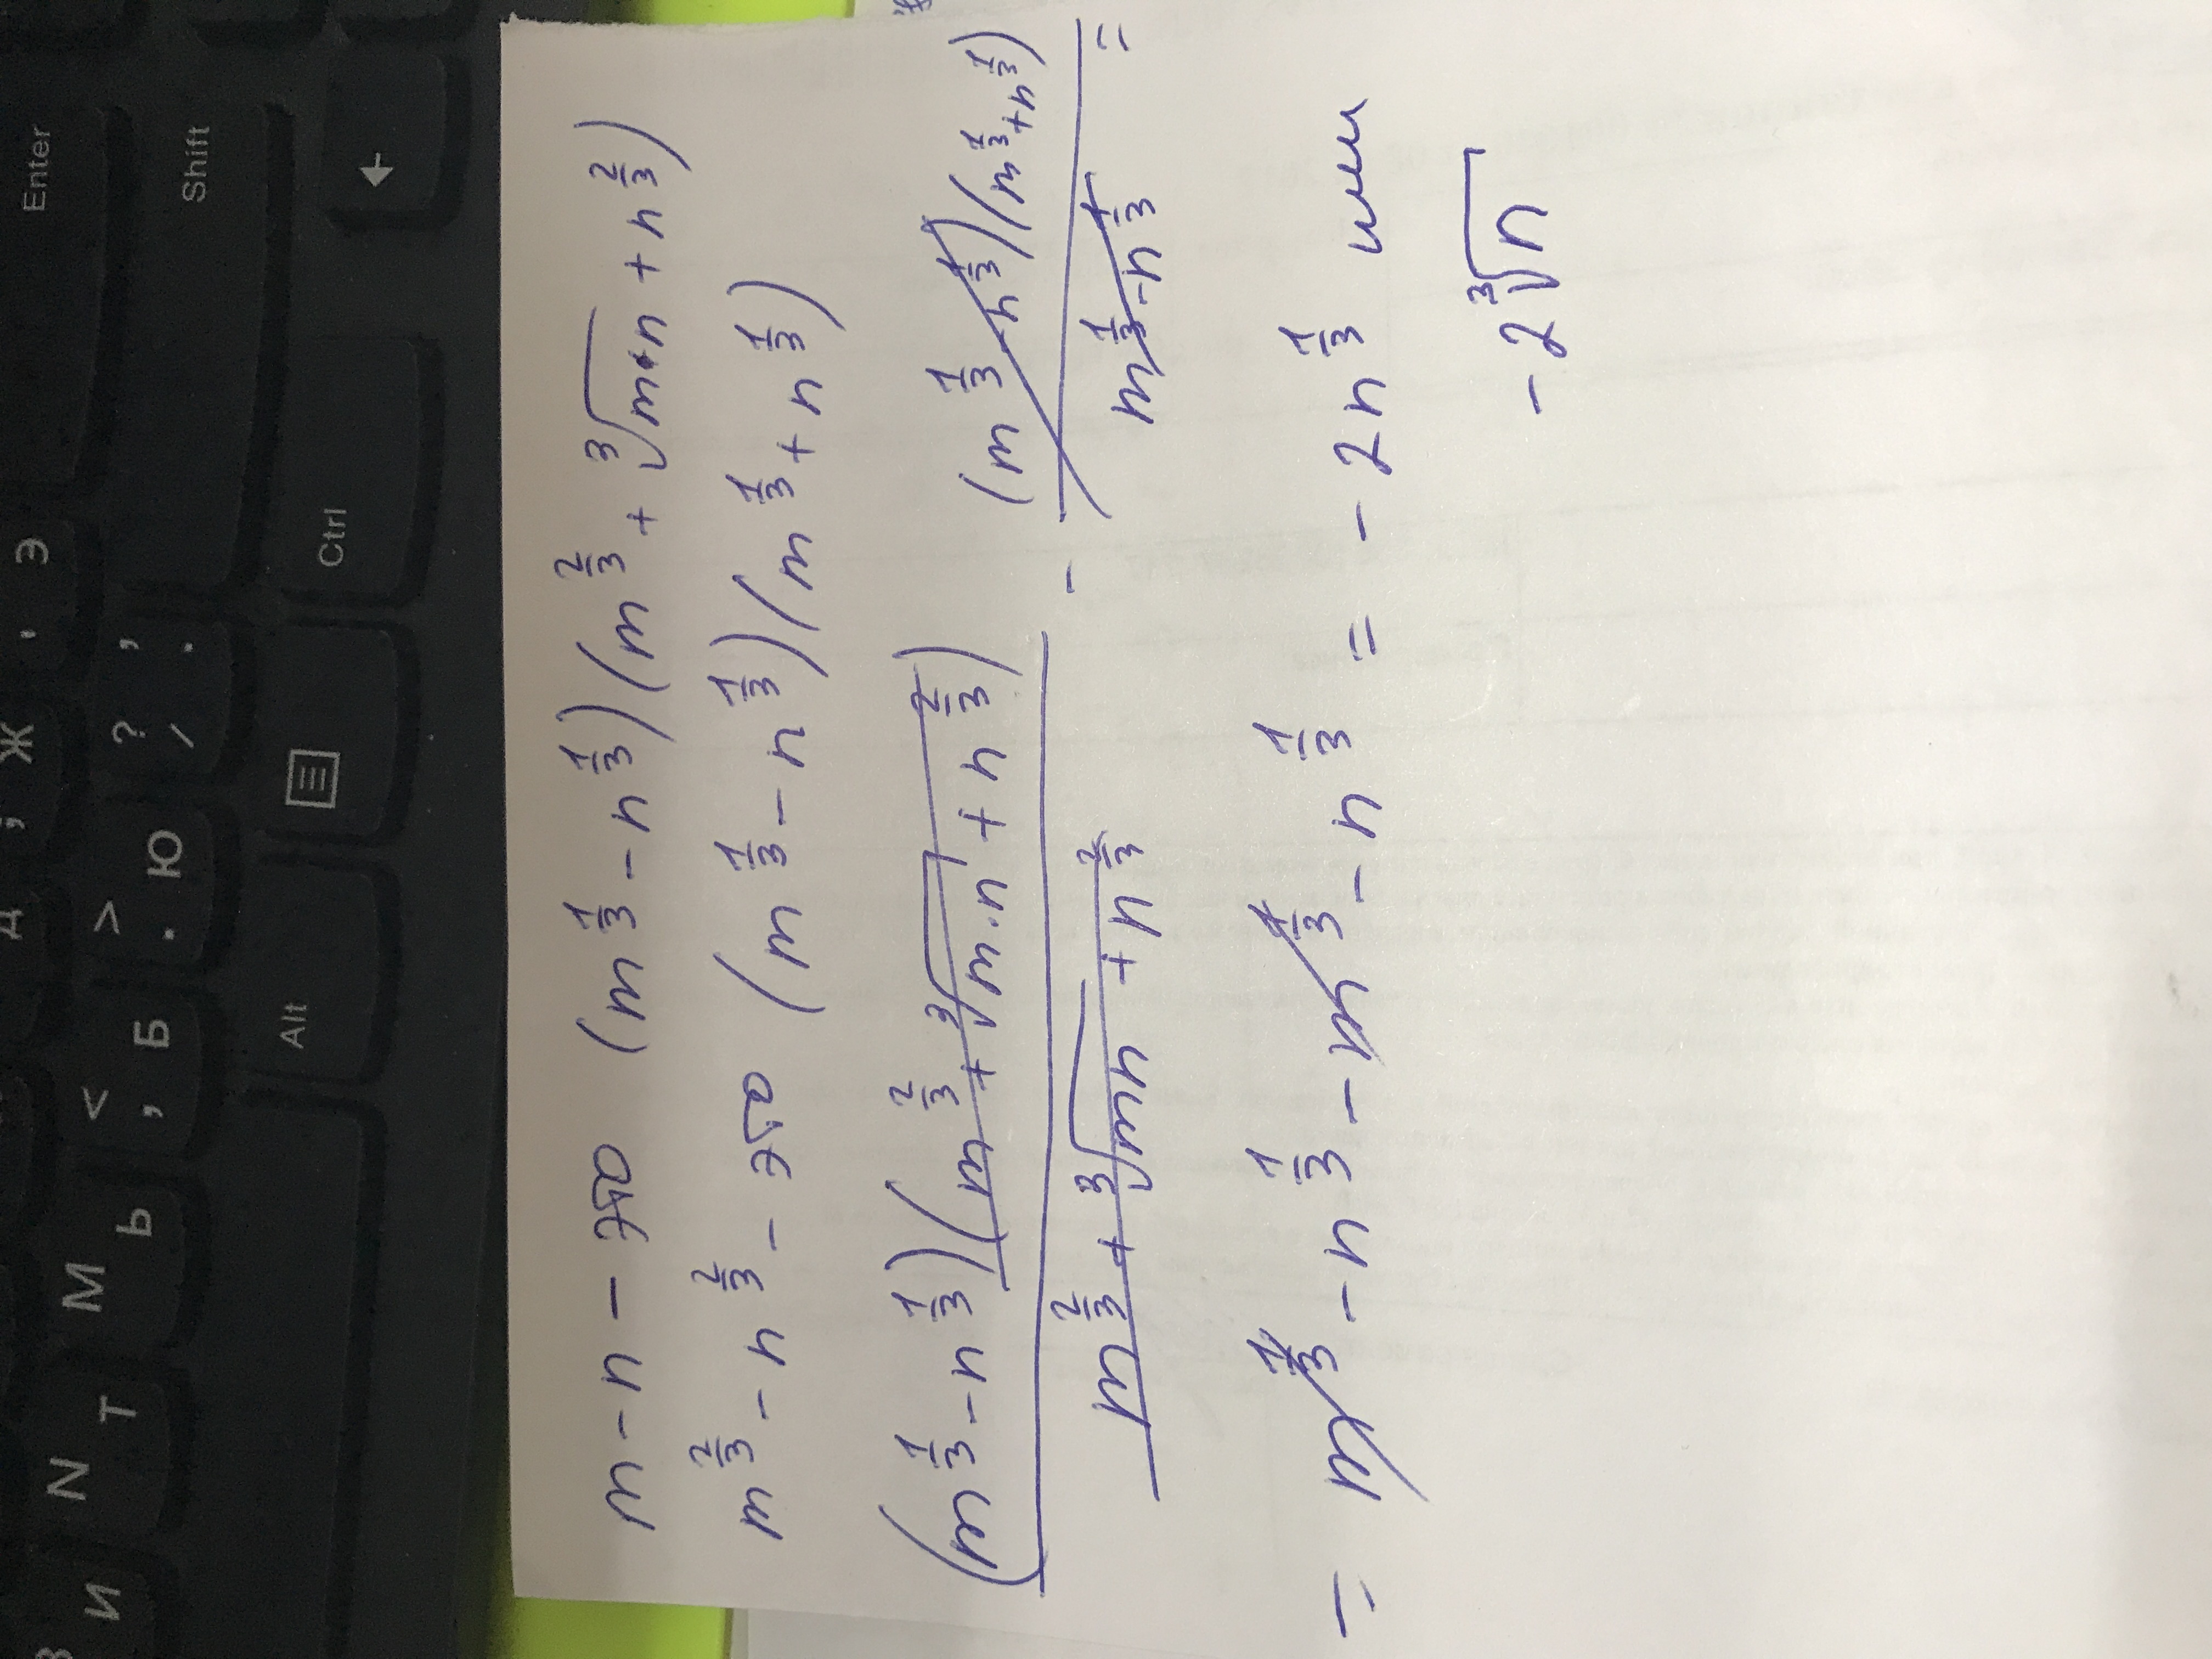 m - n - это (m^{1/3} - n^{1/3})(m^{2/3} + ∛(m·n) + n^{2/3})
m^{2/3} - n^{2/3} - это (m^{1/3} - n^{1/3})(m^{1/3} + n^{1/3})
(m^{1/3} - n^{1/3})(m^{2/3} + ∛(m·n) + n^{2/3}) / (m^{2/3} + ∛(mn) + n^{2/3}) - (m^{1/3} - n^{1/3})(m^{1/3} + n^{1/3}) / (m^{1/3} - n^{1/3}) =
= m^{1/3} - n^{1/3} - m^{1/3} - n^{1/3} = - 2n^{1/3} или
- 2∛n
Enter
Э
Ж
Shift
? ,
/ .
>
. Ю
<
, Б
Ь
M
T
N
И
Ctrl
Alt